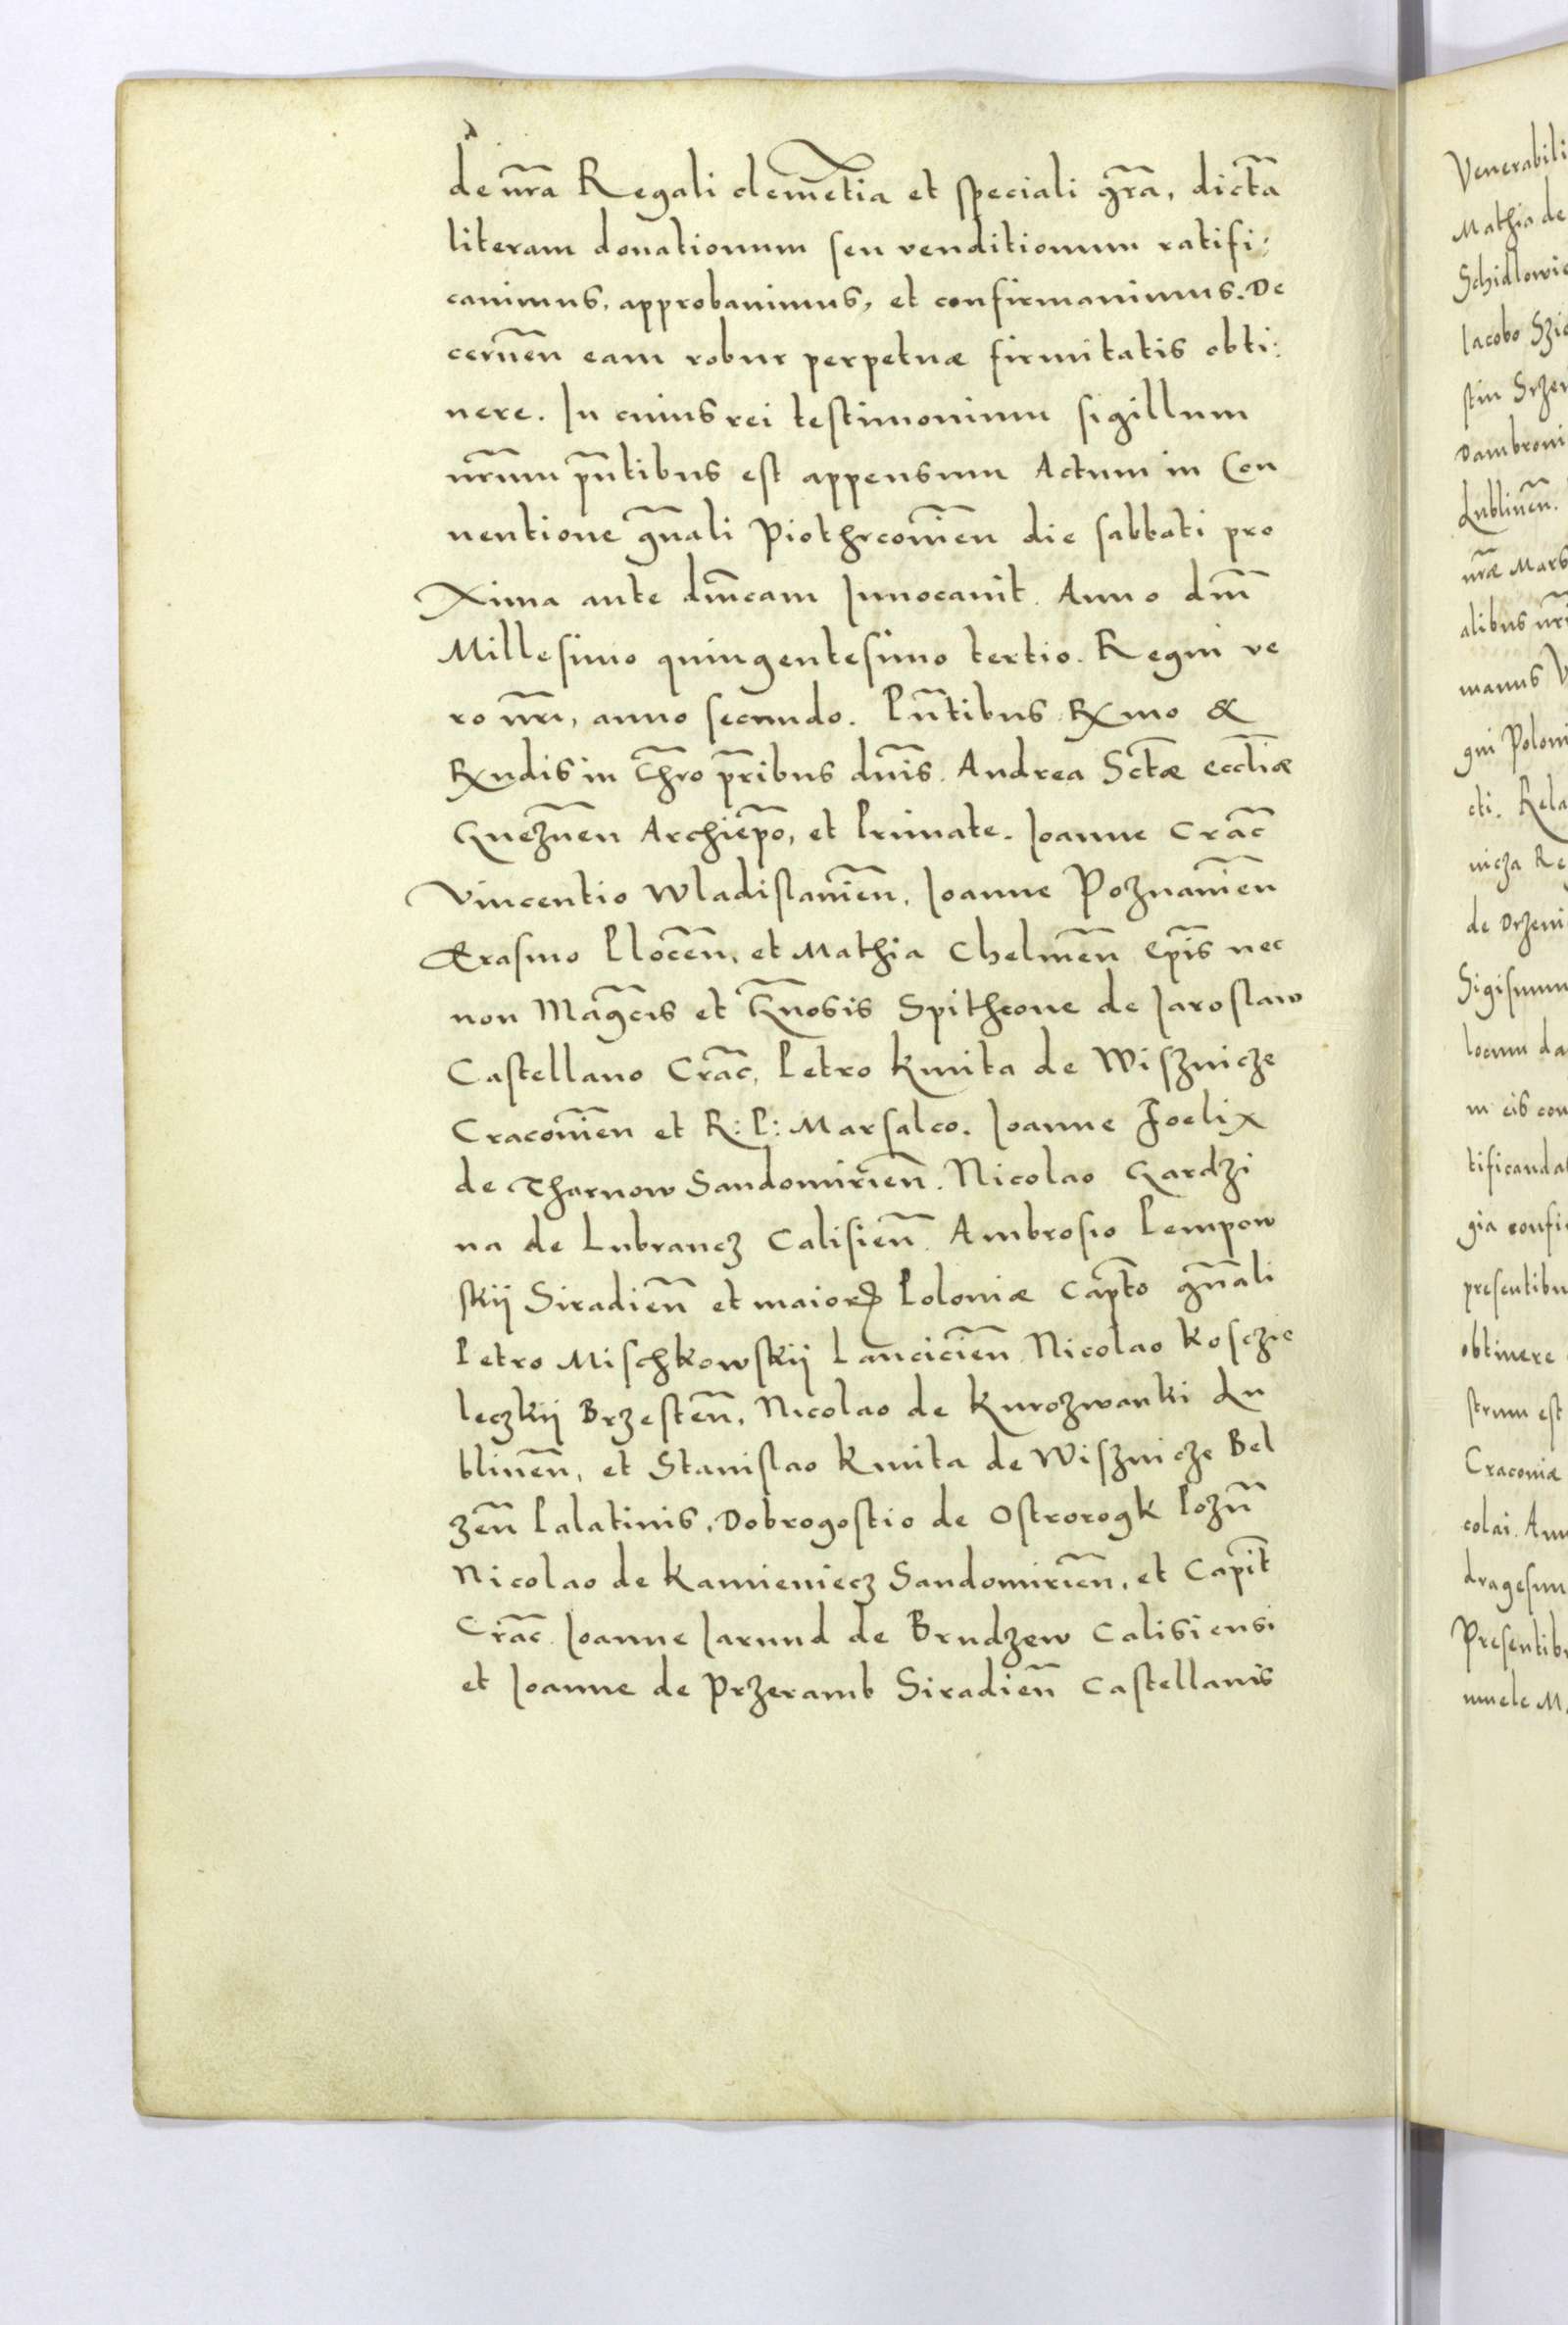 de nr̃a Regali clemẽtia et speciali gr̃a, dictã
literam donationum seu venditionum ratifi:
cauimus, approbauimus, et confirmauimus. De
cerneñ eam robur perpetuæ firmitatis obti:
nere. In cuius rei testimonium sigillum
nr̃um pñtibus est appensum Actum in Con
uentione gñali Piothrcouieñ die sabbati pro
xima ante dm̃cam Inuocauit. Anno dm̃
Millesimo quingentesimo tertio. Regni ve
ro nr̃i, anno secundo. Pñtibus Rxmo &
Rxndis in Chr̃o pr̃ibus dñis. Andrea Sctæ̃ eccliæ̃
Gnezneñ Archiep̃o, et Primate. Ioanne Crac̃
Vincentio Wladislauieñ, Ioanne Poznanieñ
Erasmo Ploceñ, et Mathia Chelmeñ Ep̃is nec
non Mag̃cis et G̃nosis Spithcone de Iaroslaw
Castellano Crac̃, Petro Kmita de Wisznicze
Cracouieñ et R: P: Marsalco. Ioanne Foelix
de Tharnow Sandomirieñ. Nicolao Gardzi
na de Lubrancz Calisieñ. Ambrosio Pempow
skij Siradieñ et maioꝝ Poloniæ Capt̃o gñali
Petro Mischkowskij Lancicieñ Nicolao Kosczie
leczkij Brzesteñ, Nicolao de Kurozwanki Lu
blineñ, et Stanislao Kmita de Wisznicze Bel
zeñ Palatinis, Dobrogostio de Ostrorogk Pozñ
Nicolao de Kamieniecz Sandomirieñ, et Capit̃
Crac̃. Ioanne Iarund de Brudzew Calisiensi
et Ioanne de Przeramb Siradieñ Castellanis
Venerabili
Mathia de
Schidlowie
Iacobo Szie
stin Srzen
Dambroni
Lublineñ.
nr̃æ Mars
alibus nr̃i
manus V
gni Poloni
cti. Rela
nicza Re
de Drzeni
Sigismun
locum da
in eis con
tificandas
gia confi
presentibu
obtinere
strum est
Cracouiæ
colai. Ann
dragesim
Presentibu
nuele M.